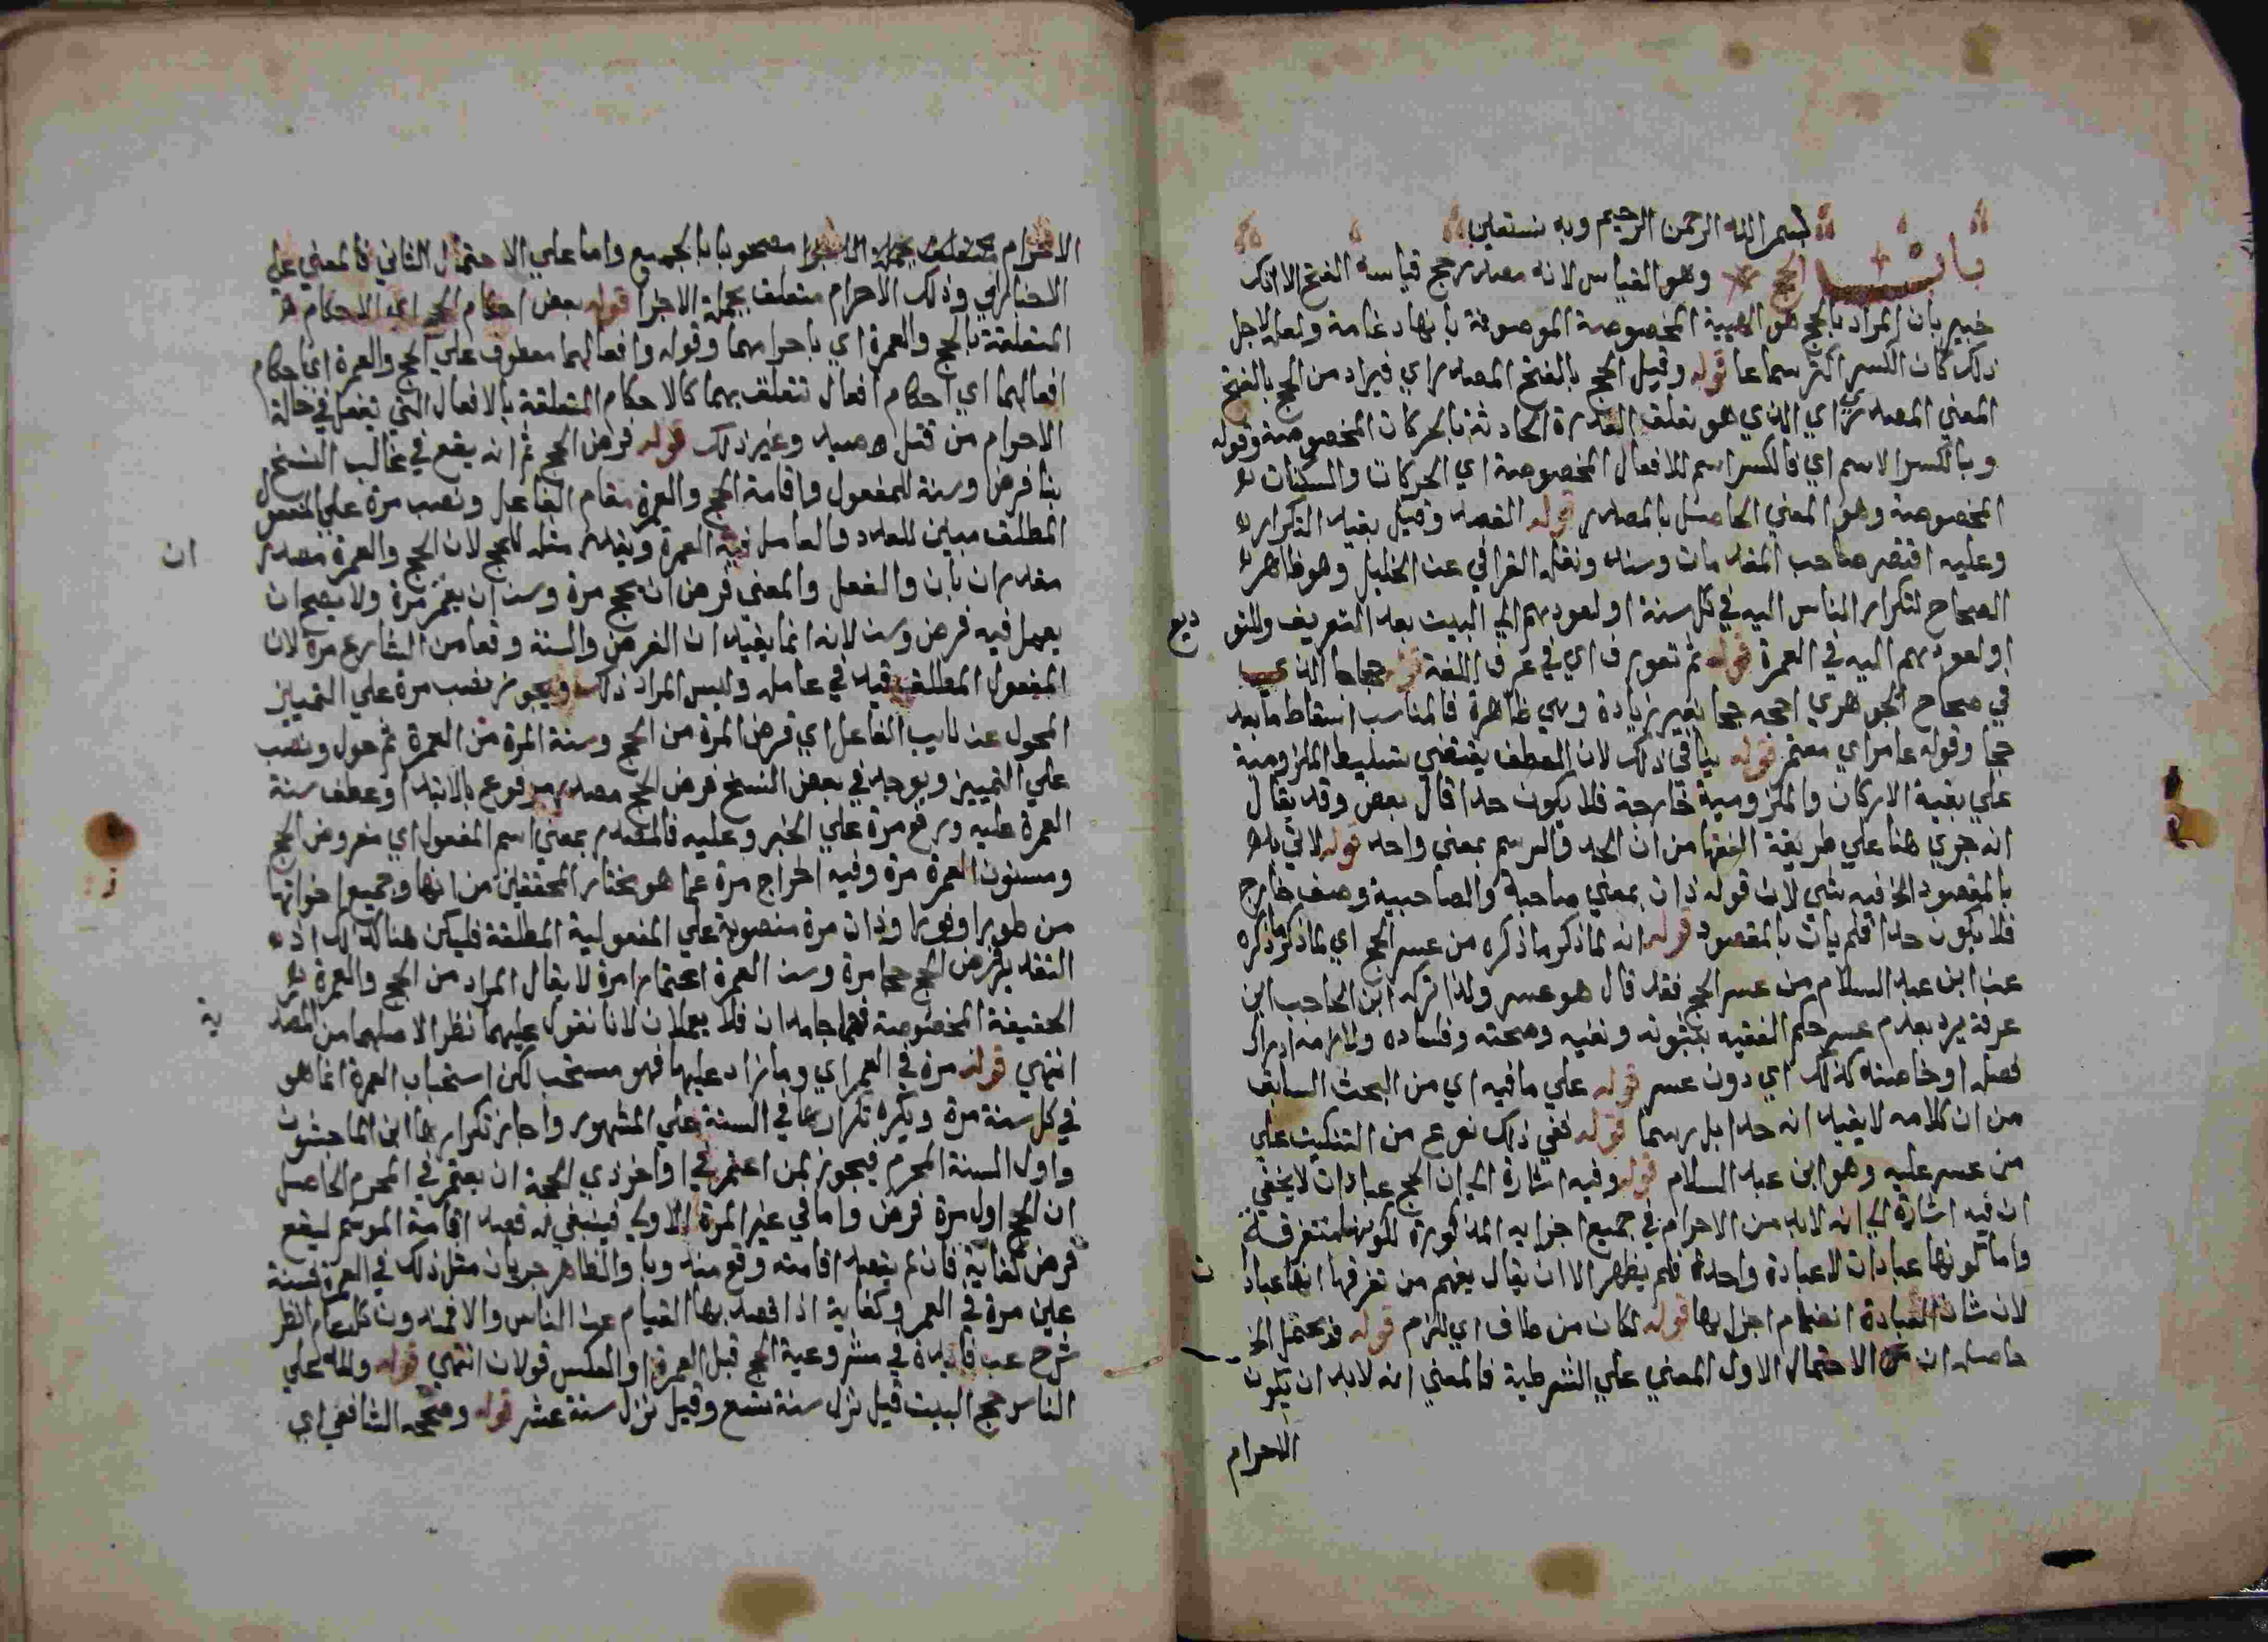 بسم الله الرحمن الرحيم وبه نستعين
باب الحج وهو القياس لانه مصدر حج قياسه الفتح الا انك
خبير بان المراد بالحج هو الهيية المخصوصة الموصوفة بانها دعامة ولعل لاجل
ذلك كان الكسر اكثر سماعا قوله وقيل الحج بالفتح المصدر اي فيراد من الحج بالفتح
المعني المصدري اي الذي هو تعلق القدرة الحادثة بالحركات المخصوصة وقوله
وبالكسر الاسم اي فالكسر اسم للافعال المخصوصة اي الحركات والسكنات
المخصوصة وهو المعني الحاصل بالمصدر قوله القصد وقيل بقيد التكرار
وعليه اقتصر صاحب المقدمات وسند ونقله القرافي عن الخليل وهو ظاهر
الصحاح لتكرار الناس اليه في كل سنة او لعودهم الي البيت بعد التعريف وللتو ديع
او لعودهم اليه في العمرة قوله ثم تعورف اي في عرف اللغة قوله حجاجا الذي
في صحاح الجوهري احجه حجا بغير زيادة وهي ظاهرة فالمناسب اسقاط ما بعد
حجا وقوله عامر اي معتمر قوله ينافي ذلك لان العطف يقتضي تسليط الملزومية
علي بقية الاركان والملزومية خارجة فلا يكون حدا قال بعض وقد يقال
انه جري هنا علي طريقة الفقها من ان الحد والرسم بمعني واحد قوله لاني بلا
بالمقصود الخ فيه شي لان قوله ذات بمعني صاحبة والصاحبية وصف خارج
فلا يكون حدا فلم يات بالمقصود قوله انه لما ذكر ما ذكره من عسر الحج اي لما ذكر ما ذكره
عن ابن عبد السلام من عسر الحج فقد قال هو عسر ولذا تركه ابن الحاجب ابن
عرفة يرد بعدم عسر حكم الفقيه بثبوته ونفيه وصحته وفساده ولازمه ادراك
فصله او خاصته كذلك اي دون عسر قوله علي ما فيه اي من البحث السابق
من ان كلامه لا يفيد انه حدا بل رسما قوله ففي ذلك نوع من التنكيت علي
من عسر عليه وهو ابن عبد السلام قوله وفيه اشارة الي ان الحج عبادات لا يخفي
ان فيه اشارة الي انه لابد من الاحرام في جميع اجزايه المذكورة لكونها متفرقة
واما كونها عبادات لا عبادة واحدة فلم يظهر الا ان يقال يفهم من تفرقها انها عباد ت
لان شان العبادة انضمام اجزايها قوله لكان من طاف اي لزم قوله قد يحتمل الخ
حاصله ان الاحتمال الاول المعني علي الشرطية فالمعني انه لابد ان يكون
الاحرام
الاحرام متعلق بجملة الاجزا مصحوبا بالجميع واما علي الاحتمال الثاني فالمعني علي
الاخبار اي وذلك الاحرام متعلق بجملة الاجزا قوله بعض احكام الحج اي الاحكام
المتعلقة بالحج والعمرة اي باحرامهما وقوله وافعالهما معطوف علي الحج والعمرة اي احكام
افعالهما اي احكام افعال تتعلق بهما كالاحكام المتعلقة بالافعال التي تفعل في حالة
الاحرام من قتل صيد وغير ذلك قوله فرض الحج ثم انه يقع في غالب النسخ
بنا فرض وسنة للمفعول واقامة الحج والعمرة مقام الفاعل ونصب مرة علي المفعول
المطلق مبين للعدد والعامل فيه العمرة ويقدر مثله للحج لان الحج والعمرة مصدر ان
مقدران بان والفعل والمعني فرض ان يحج مرة وسن ان يعتمر مرة ولا يصح ان
يعمل فيه فرض وسن لانه انما يفيد ان الفرض والسنة وقعا من الشارع مرة لان
المفعول المطلق قيد في عامله وليس المراد ذلك ويجوز نصب مرة علي التمييز
المحول عن نايب الفاعل اي فرض المرة من الحج وسنة المرة من العمرة ثم حول ونصب
علي التمييز ويوجد في بعض النسخ فرض الحج مصدر مرفوع بالابتدا وعطف سنة
العمرة عليه ورفع مرة علي الخبر وعليه فالمصدر بمعني اسم المفعول اي مفروض الحج
ومسنون العمرة مرة وفيه اخراج مرة عما هو مختار المحققين من انها وجميع اخواتها
من طورا وفورا وذات مرة منصوبة علي المفعولية المطلقة فليكن هنا كذلك اذ
التقدير فرض الحج حجا مرة وسن العمرة اعتمارا مرة لا يقال المراد من الحج والعمرة
الحقيقة المخصوصة فهما جامدان فلا يعملان لانا نقول عليهما نظر الاصلهما من المصد رية
انتهي قوله مرة في العمر اي وما زاد عليها فهو مستحب لكن استحباب العمرة انما هو
في كل سنة مرة ويكره تكرارها في السنة علي المشهور واجاز تكرارها ابن الماجشون
واول السنة المحرم فيجوز لمن اعتمر في اواخر ذي الحجة ان يعتمر في المحرم الحاصل
ان الحج اول مرة فرض واما في غير المرة الاولي فينبغي له قصد اقامة الموسم ليقع
فرض كفاية فان لم يقصد اقامته وقع مندوبا والظاهر جريان مثل ذلك في العمرة فسنة
عين مرة في العمر وكفاية اذا قصد بها القيام عن الناس والا فمندوب كل عام انظر
شرح عب فايدة في مشروعية الحج قبل العمرة او العكس قولان انتهي قوله ولله علي
الناس حج البيت قيل نزل سنة تسع وقيل نزل سنة عشر قوله وصححه الشافعي اي